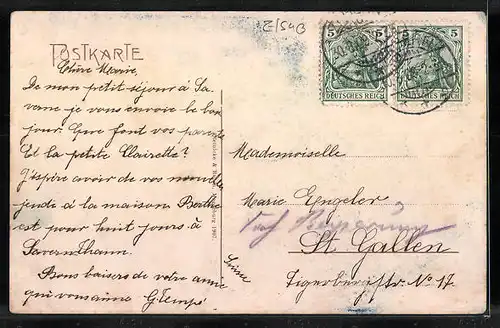 POSTKARTE
5 5
5 5
DEUTSCHES REICH DEUTSCHES REICH
Chère Marie,
De mon petit séjour à Sa-
verne je vous envoie le bon
jour. Que font vos parents
Et la petite Clairette?
J'espère avoir de vos nouvelles
jeudi à la maison. Berthe
est pour huit jours à
Savern Thann.
Bons baisers de votre amie
qui vous aime
Mademoiselle
Marie Engeler
St. Gallen
Tigerbergstr. No 17.
Suisse
1907.